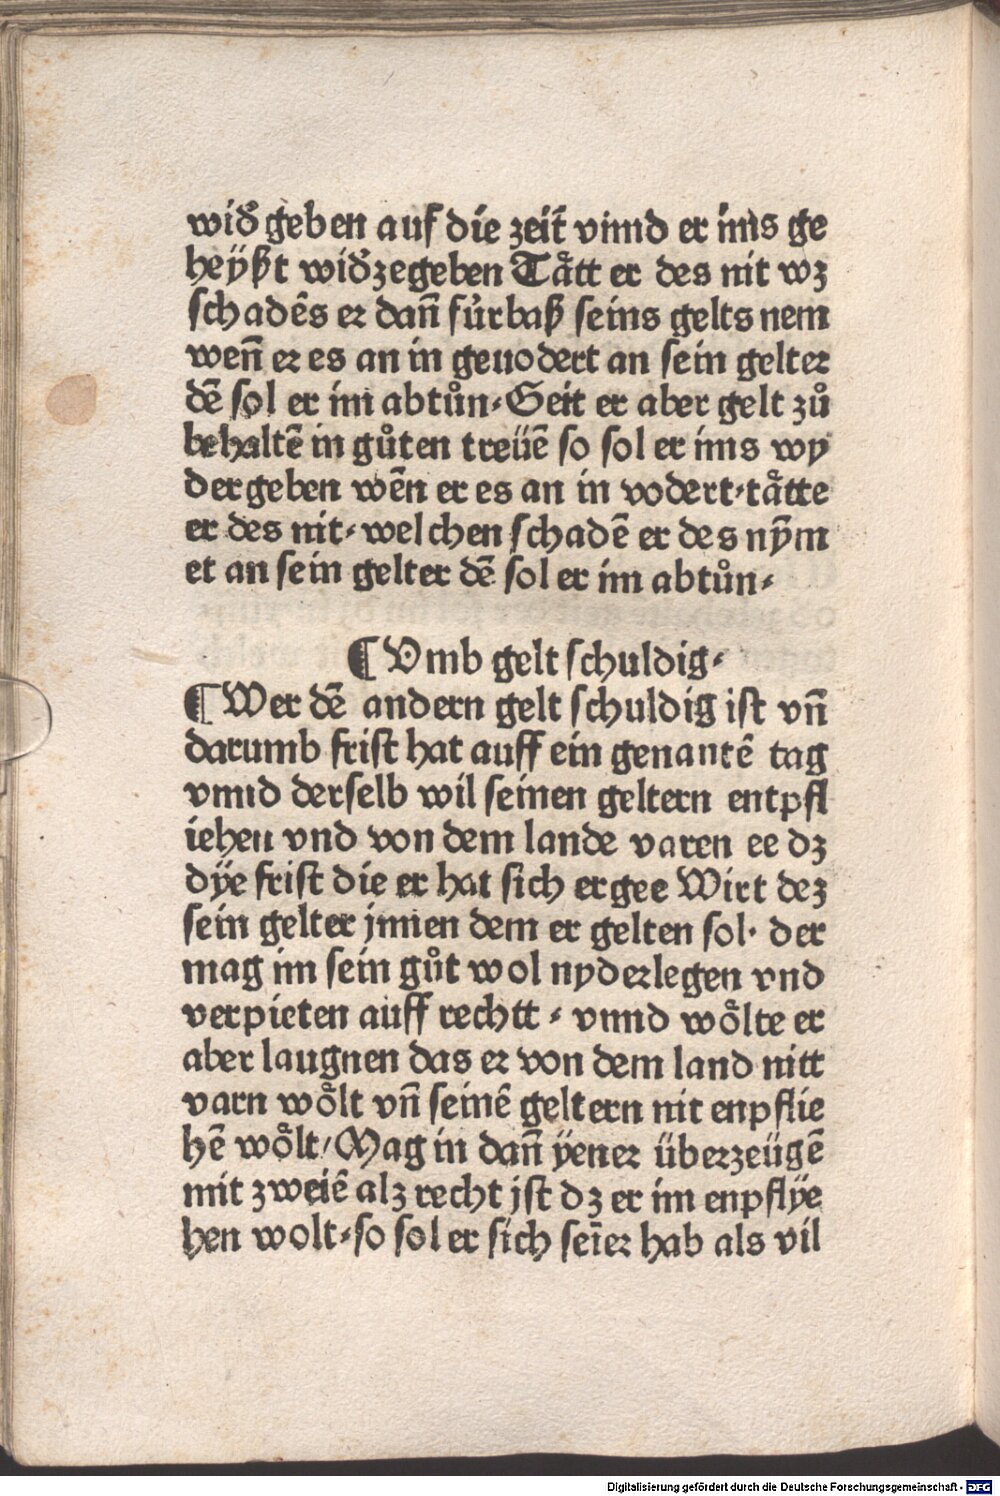 wid̾ geben auf die zeit̄ vnnd er ims ge
heÿßt wid̾zegeben Taͤtt er des nit wz
schadēs er dañ fúrbaß seins gelts nem
weñ er es an in geuodert an sein gelter
dē sol er im abtůn⸗Seit er aber gelt zů
behaltē in gůten treüē so sol er ims wy
der geben wēn er es an in vodert⸗taͤtte
er des nit⸗ welchen schadē er des nȳm
et an sein gelter dē sol er im abtůn⸗
¶ Vmb gelt schuldig⸗
¶ Wer dē andern gelt schuldig ist vñ
darumb frist hat auff ein genantē tag
vnnd derselb wil seinen geltern entpfl
iehen vnd von dem lande varen ee dz
dÿe frist die er hat sich ergee Wirt dez
sein gelter jnnen dem er gelten sol· der
mag im sein gůt wol nyderlegen vnd
verpieten auff rechtt ⸗ vnnd woͤlte er
aber laugnen das er von dem land nitt
varn woͤlt vñ seinē geltern nit enpflie
hē woͤlt/Mag in dañ ÿener überzeügē
mit zweiē alz recht jst dz er im enpflÿe
hen wolt⸗so sol er sich seīer hab als vil
Digitalisierung gefördert durch die Deutsche Forschungsgemeinschaft - DFG